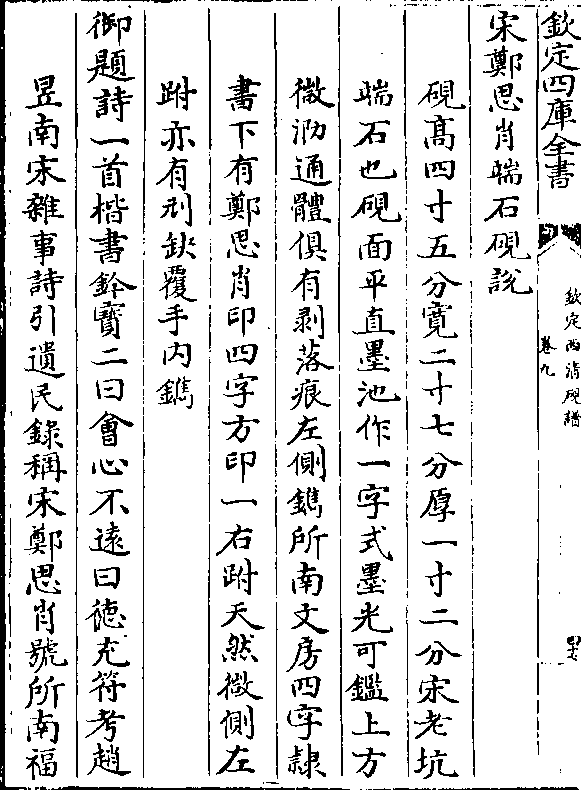 欽定四庫全書
欽定西清硯譜
卷九
宋鄭思肖端石硯說
硯高四寸五分寬二寸七分厚一寸二分宋老坑
端石也硯面平直墨池作一字式墨光可鑑上方
微泐通體俱有剥落痕左側鐫所南文房四字隸
書下有鄭思肖印四字方印一右跗天然微側左
跗亦有刓缺覆手内鐫
御題詩一首楷書鈐寶二曰會心不遠曰德充符考趙
昱南宋雜事詩引遺民錄稱宋鄭思肖號所南福